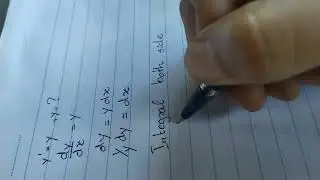 y' = y → y = ?
dy/dx = y
dy = y dx
1/y dy = dx
Integral both side